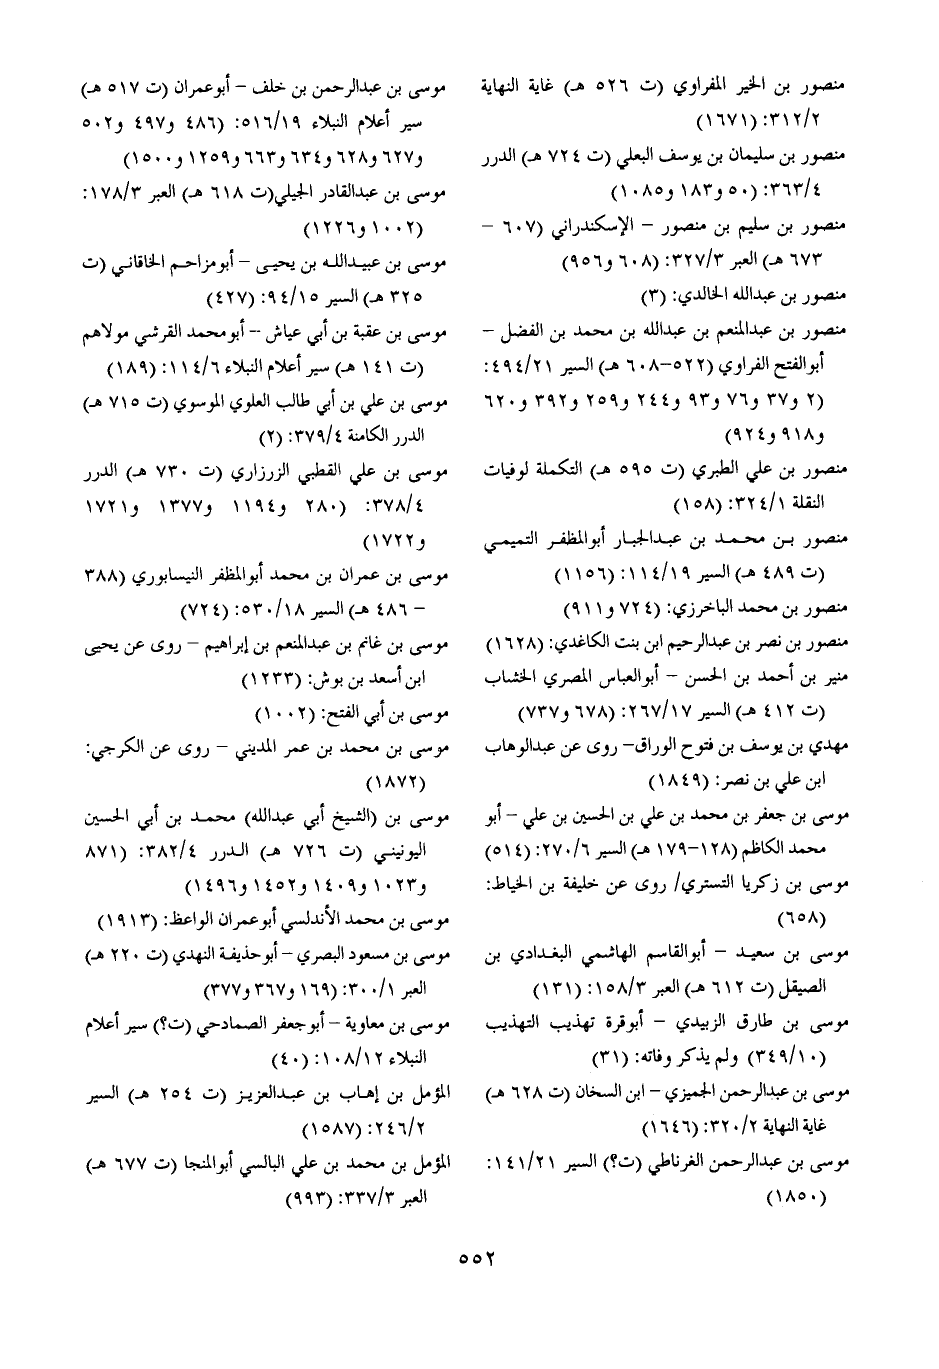 منصور بن الخير المفراوي (ت ٥٢٦ هـ) غاية النهاية
٣١٢/٢: (١٦٧١)
منصور بن سليمان بن يوسف البعلي (ت ٧٢٤ هـ) الدرر
٣٦٣/٤: (٥٠ و١٨٣ و١٠٨٥)
منصور بن سليم بن منصور – الإسكندراني (٦٠٧ –
٦٧٣ هـ) العبر ٣٢٧/٣: (٦٠٨ و٩٥٦)
منصور بن عبدالله الخالدي: (٣)
منصور بن عبدالمنعم بن عبدالله بن محمد بن الفضل –
أبوالفتح الفراوي (٥٢٢–٦٠٨ هـ) السير ٤٩٤/٢١:
(٢ و٣٧ و٧٦ و٩٣ و٢٤٤ و٢٥٩ و٣٩٢ و٦٢٠
و٩١٨ و٩٢٤)
منصور بن علي الطبري (ت ٥٩٥ هـ) التكملة لوفيات
النقلة ٣٢٤/١: (١٥٨)
منصور بن محمد بن عبدالجبار أبوالمظفر التميمي
(ت ٤٨٩ هـ) السير ١١٤/١٩: (١١٥٦)
منصور بن محمد الباخرزي: (٧٢٤ و٩١١)
منصور بن نصر بن عبدالرحيم ابن بنت الكاغدي: (١٦٢٨)
منير بن أحمد بن الحسن – أبوالعباس المصري الخشاب
(ت ٤١٢ هـ) السير ٢٦٧/١٧: (٦٧٨ و٧٣٧)
مهدي بن يوسف بن فتوح الوراق– روى عن عبدالوهاب
ابن علي بن نصر: (١٨٤٩)
موسى بن جعفر بن محمد بن علي بن الحسين بن علي – أبو
محمد الكاظم (١٢٨–١٧٩ هـ) السير ٢٧٠/٦: (٥١٤)
موسى بن زكريا التستري/ روى عن خليفة بن الخياط:
(٦٥٨)
موسى بن سعيد – أبوالقاسم الهاشمي البغدادي بن
الصيقل (ت ٦١٢ هـ) العبر ١٥٨/٣: (١٣١)
موسى بن طارق الزبيدي – أبوقرة تهذيب التهذيب
(٣٤٩/١٠) ولم يذكر وفاته: (٣١)
موسى بن عبدالرحمن الجميزي – ابن السخان (ت ٦٢٨ هـ)
غاية النهاية ٣٢٠/٢: (١٦٤٦)
موسى بن عبدالرحمن الغرناطي (ت؟) السير ١٤١/٢١:
(١٨٥٠)
موسى بن عبدالرحمن بن خلف – أبوعمران (ت ٥١٧ هـ)
سير أعلام النبلاء ٥١٦/١٩: (٤٨٦ و٤٩٧ و٥٠٢
و٦٢٧ و٦٢٨ و٦٣٤ و٦٦٣ و١٢٥٩ و١٥٠٠)
موسى بن عبدالقادر الجيلي(ت ٦١٨ هـ) العبر ١٧٨/٣:
(١٠٠٢ و١٢٢٦)
موسى بن عبيدالله بن يحيى – أبومزاحم الخاقاني (ت
٣٢٥ هـ) السير ٩٤/١٥: (٤٢٧)
موسى بن عقبة بن أبي عياش – أبومحمد القرشي مولاهم
(ت ١٤١ هـ) سير أعلام النبلاء ١١٤/٦: (١٨٩)
موسى بن علي بن أبي طالب العلوي الموسوي (ت ٧١٥ هـ)
الدرر الكامنة ٣٧٩/٤: (٢)
موسى بن علي القطبي الزرزاري (ت ٧٣٠ هـ) الدرر
٣٧٨/٤: (٢٨٠ و١١٩٤ و١٣٧٧ و١٧٢١
و١٧٢٢)
موسى بن عمران بن محمد أبوالمظفر النيسابوري (٣٨٨
– ٤٨٦ هـ) السير ٥٣٠/١٨: (٧٢٤)
موسى بن غانم بن عبدالمنعم بن إبراهيم – روى عن يحيى
ابن أسعد بن بوش: (١٢٣٣)
موسى بن أبي الفتح: (١٠٠٢)
موسى بن محمد بن عمر المديني – روى عن الكرجي:
(١٨٧٢)
موسى بن (الشيخ أبي عبدالله) محمد بن أبي الحسين
اليونيني (ت ٧٢٦ هـ) الدرر ٣٨٢/٤: (٨٧١
و١٠٢٣ و١٤٠٩ و١٤٥٢ و١٤٩٦)
موسى بن محمد الأندلسي أبوعمران الواعظ: (١٩١٣)
موسى بن مسعود البصري – أبوحذيفة النهدي (ت ٢٢٠ هـ)
العبر ٣٠٠/١: (١٦٩ و٣٦٧ و٣٧٧)
موسى بن معاوية – أبوجعفر الصمادحي (ت؟) سير أعلام
النبلاء ١٠٨/١٢: (٤٠)
المؤمل بن إهاب بن عبدالعزيز (ت ٢٥٤ هـ) السير
٢٤٦/٢: (١٥٨٧)
المؤمل بن محمد بن علي البالسي أبوالمنجا (ت ٦٧٧ هـ)
العبر ٣٣٧/٣: (٩٩٣)
٥٥٢